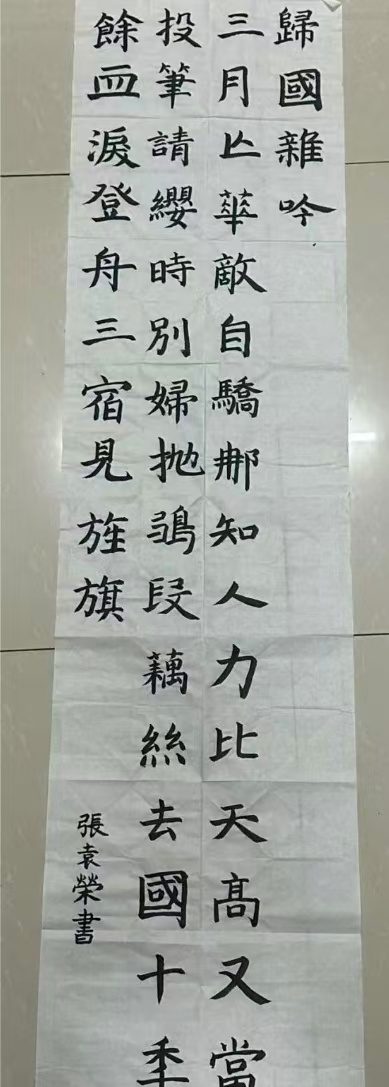 歸國雜吟
三月亾華敵自驕那知人力比天高又當
投筆請纓時別婦抛段藕絲去國十秊
餘血淚登舟三宿見旌旗
張袁榮書